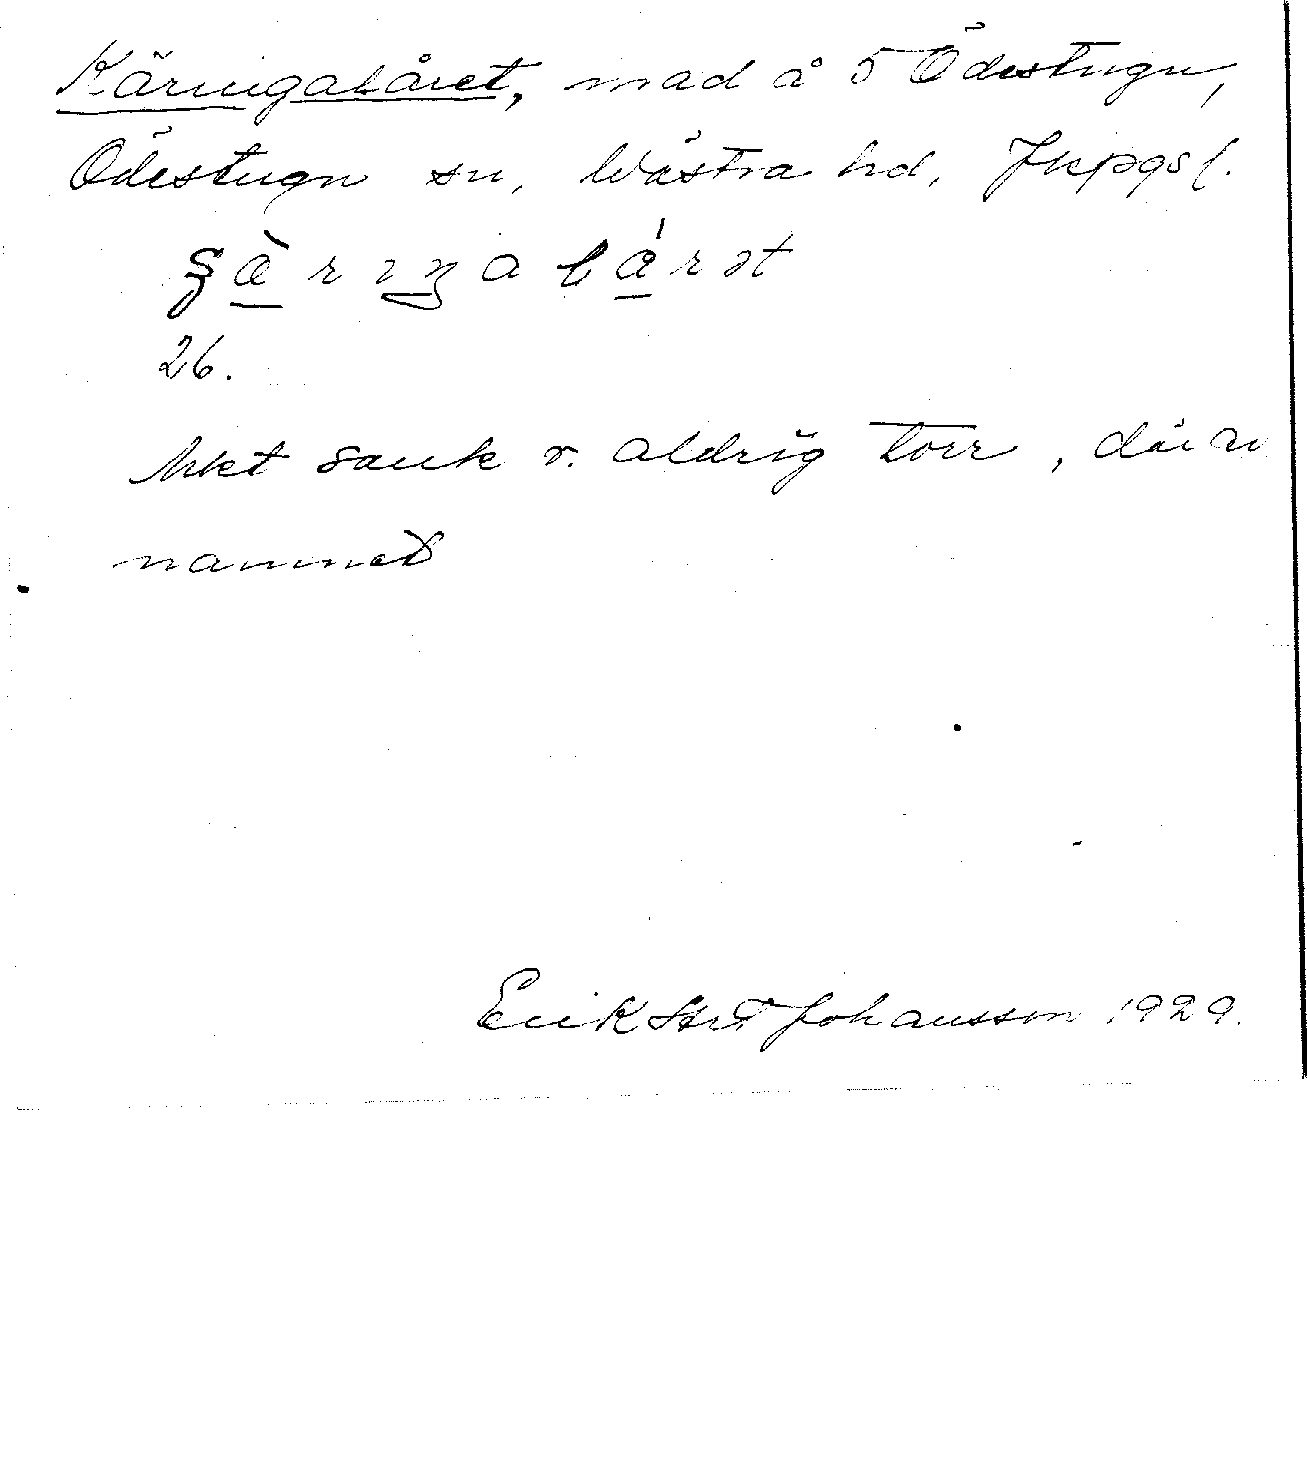 Käringalåret, mad å 5 Ödestugu,
Ödestugu sn, Västra hd, Jkpgs l.
26.
Mkt sank o. aldrig torr, därav
namnet
Erik Johansson 1929.